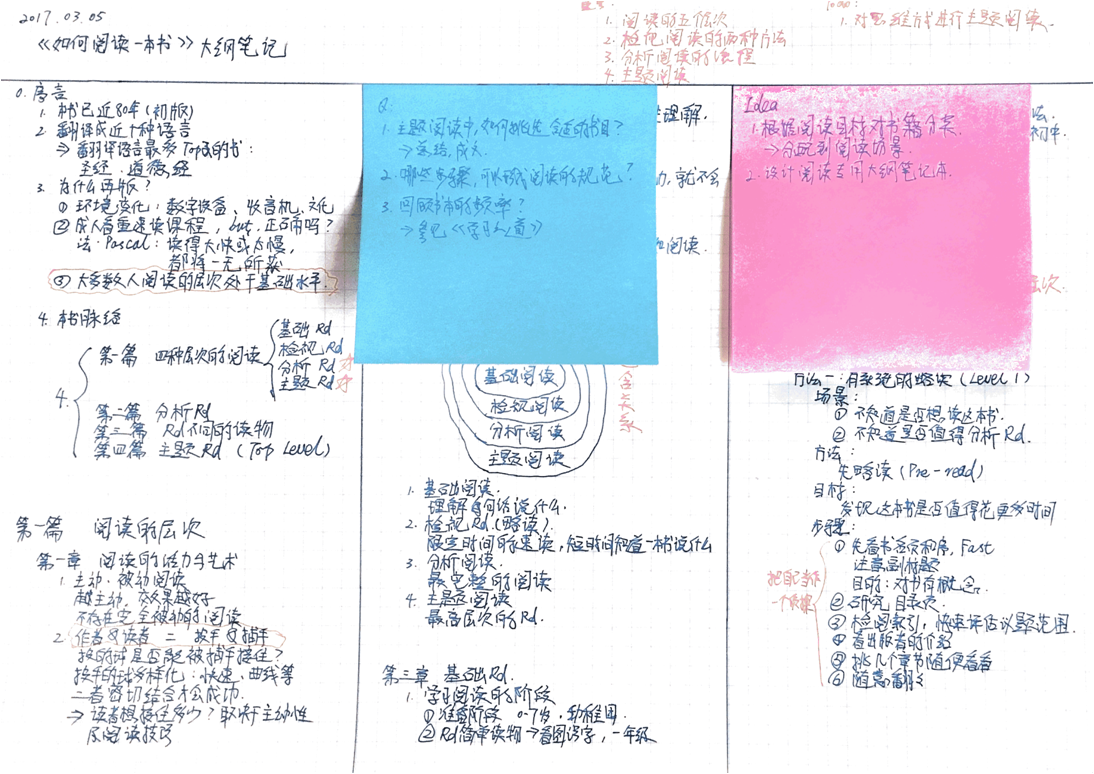 2017.03.05
《如何阅读一本书》大纲笔记
1. 阅读的五个层次
2. 检视阅读的两种方法
3. 分析阅读的流程
4. 主题阅读
1. 对思维方式进行主题阅读.
0. 序言
1. 本书已近80年(初版)
2. 翻译成近十种语言
⇒ 翻译语言最多Top3的书:
圣经、道德经
3. 为什么再版?
① 环境变化:数字设备、收音机、文化
② 成人看重速读课程, but. 正确吗?
法·Pascal: 读得太快或太慢,
都将一无所获
③ 大多数人阅读的层次处于基础水平.
4. 本书脉络
4.
第一篇 四种层次的阅读
基础 Rd
检视 Rd
分析 Rd
主题 Rd
第二篇 分析Rd
第三篇 Rd不同的读物
第四篇 主题Rd (Top Level)
第一篇 阅读的层次
第一章 阅读的活力与艺术
1. 主动·被动阅读
越主动, 效果越好
不存在完全被动的阅读
2. 作者&读者 = 投手&捕手
投的球是否能被捕手接住?
投手的球多样化:快速、曲线等
二者密切结合才会成功.
⇒ 读者想接住多少?取决于主动性
及阅读技巧
Q:
1. 主题阅读中, 如何挑选合适的书目?
→ 总结,
2. 哪些步骤, 可以形成阅读的规范?
3. 回顾书本的频率?
→ 参见《学习之道》
理解.
力, 就不会
阅读.
基础阅读
检视阅读
分析阅读
主题阅读
包含关系
1. 基础阅读.
理解每句话说什么.
2. 检视Rd.(略读).
限定时间的速读, 短时间知道一本书说什么
3. 分析阅读.
最完整的阅读
4. 主题阅读
最高层次的Rd.
第三章 基础Rd.
1. 学习阅读的阶段
① 准备阶段 0-7岁, 幼稚园.
② Rd简单读物 → 看图识字, 一年级
Idea
1. 根据阅读目标对书籍分类.
→ 分配到阅读场景.
2. 设计阅读专用大纲笔记本.
法.
层次.
方法一:有系统的略读 (Level 1)
场景:
① 不知道是否想读这本书.
② 不知道是否值得分析Rd.
方法:
先略读 (Pre-read)
目标:
发现这本书是否值得花更多时间
步骤:
① 先看书名页和序, Fast
注意副标题
目的:对书有概念.
② 研究目录页.
③ 检阅索引, 快速评估议题范围.
④ 看出版者的介绍
⑤ 挑几个章节随便看看
⑥ 随意翻翻
把自己当作
一个侦探